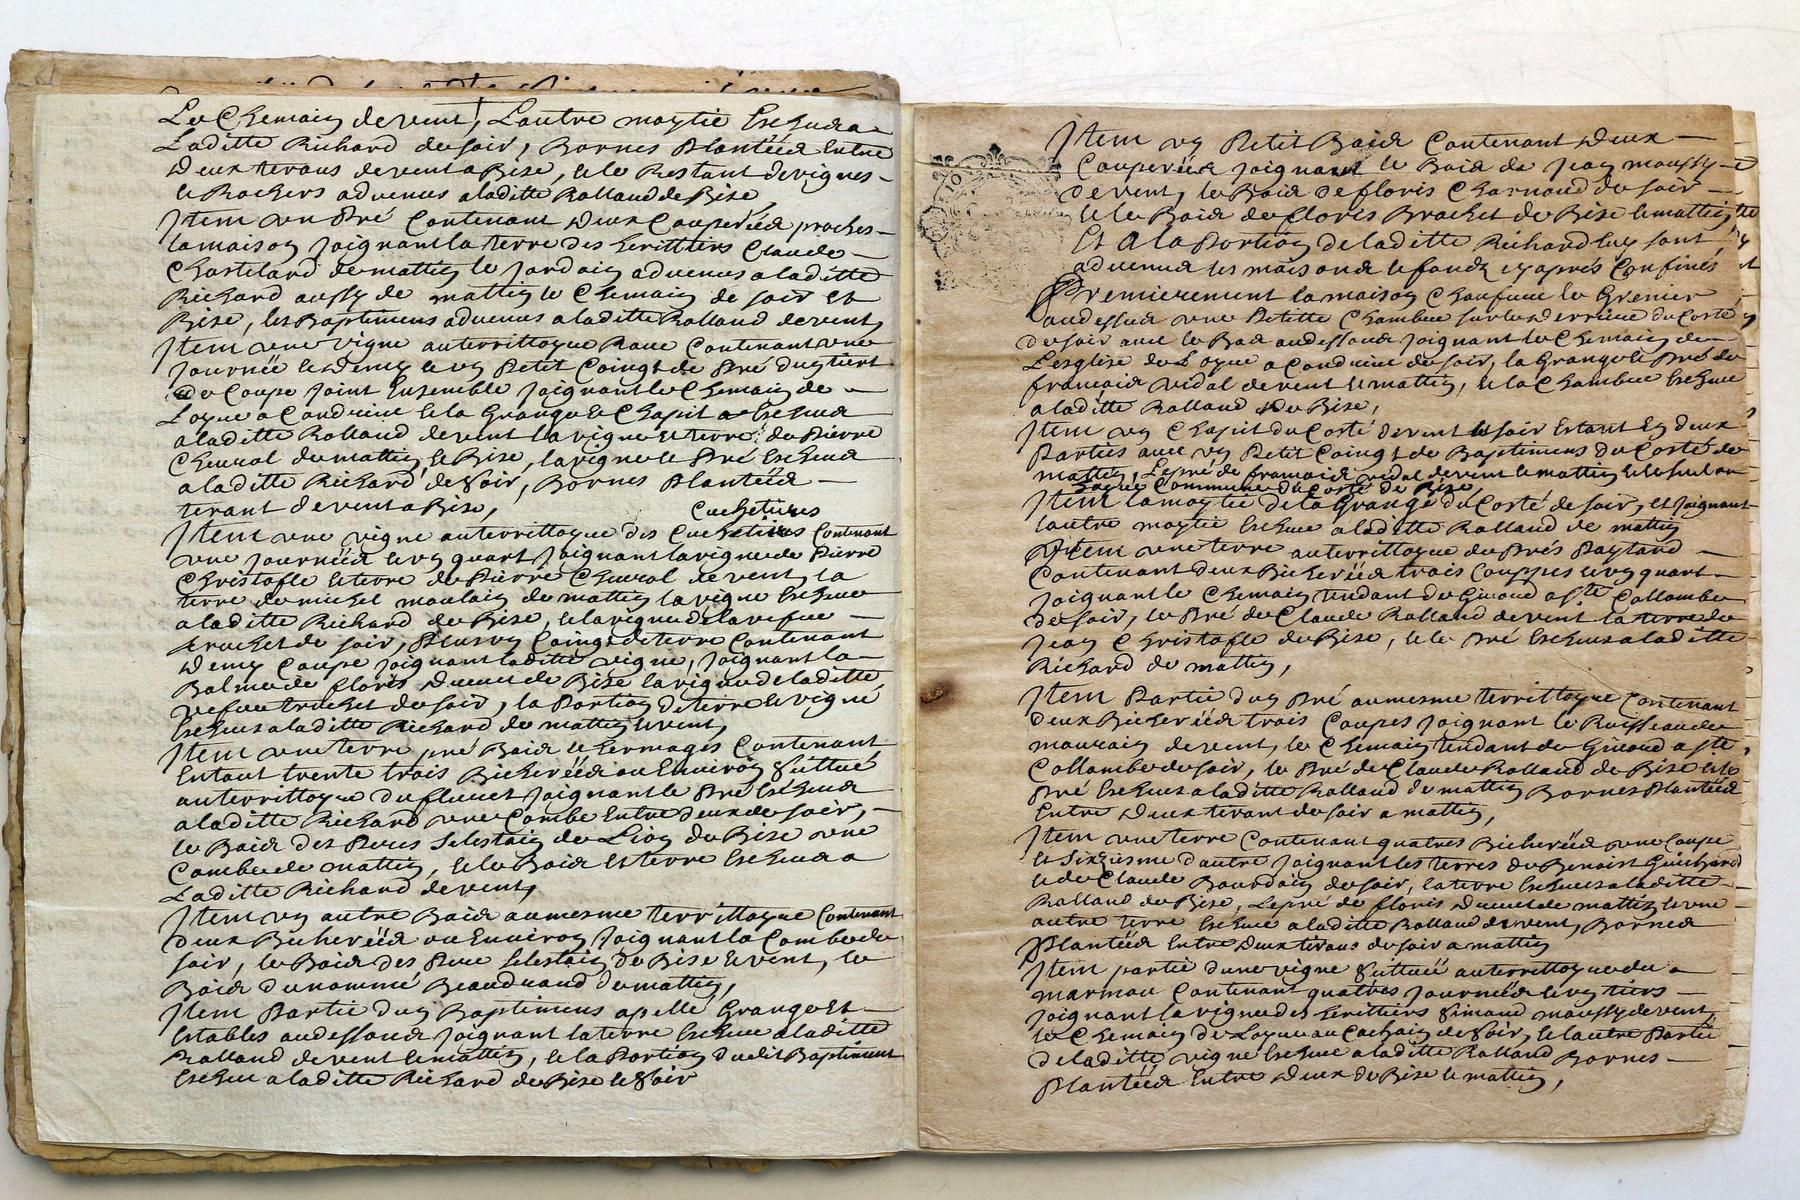 Le Chemain de vent, Lautre moytie Escheue a
Laditte Richard de soir, Bornes Plantéés Entre
deux tirans de vent a Bise, et le Restant de vignes
et Rochers advenus a laditte Rolland de Bise,
Item un Pré Contenant deux Couperéés proches
la maison Joignant la terre des herittiers Claude
Chastelard de mattin le Jardain advenus a laditte
Richard aussy de mattin le Chemain de soir et
Bise, les Baptimens advenus a laditte Rolland de vent,
Item une vigne au territtoyre Contenant une
Journéé et demy et un Petit Coingt de Pré du tiert
de Coupe Joint Ensemble Joignant le Chemain de
Loyre a Condrieu et la Grange et Chapit Escheus
a laditte Rolland de vent la vigne et terre de Pierre
Cheural de mattin et Bise, la vigne et Pré Escheus
a laditte Richard de soir, Bornes Plantéés
tirant de vent a Bise,
Cuchetiéres
Item une vigne au territtoyre des Cuchetiéres Contenant
une Journéé et un quart Joignant la vigne de Pierre
Christofle et terre de Pierre Cheural de vent, la
terre de michel moulain de mattin la vigne Escheue
a laditte Richard de Bise, et la vigne de la vefue
trochet de soir, Plus un Coing de terre Contenant
demy Coupe Joignant laditte vigne, Joignant la
Balme de floris de Bise la vigne de laditte
vefue trochet de soir, la Portion de terre et vigne
Escheus a laditte Richard de mattin et vent,
Item une terre pré Bois et hermages Contenant
Entout trente trois Bicheréés ou Environ scittué
au territtoyre du Joignant le Pré Escheus
a laditte Richard une Combe Entre deux de soir,
le Bois des Peres Selestain de Lion de Bise une
Combe de mattin, et le Bois et terre Escheus a
Laditte Richard de vent,
Item un autre Bois au mesme territtoyre Contenant
deux Bicheréés ou Environ, Joignant la Combe de
soir, le Bois des Pere Selestain de Bise et vent, le
Bois du nommé de mattin,
Item Partie d'un Baptimens apellé Grange et
Estables au dessous Joignant la terre Escheue a laditte
Rolland de vent et mattin, et la Portion dudit Baptiment
Escheue a laditte Richard de Bise et soir
Item un Petit Bois Contenant deux
Couperéés Joignant le Bois de Jean moussy
de vent, le Bois de floris Charnaud de soir
et le Bois de floris Brochet de Bise et mattin,
Et A la Portion de laditte Richard luy sont
advenus les maisons et fondz cy aprés Confinés
Premierement la maison le Grenier
au dessus une Petitte Chambre sur le derriere du Costé
de soir avec le Bas au dessous Joignant le Chemain de
L'esglise de Loyre a Condrieu de soir, la Grange et Pré de
françois vidal de vent et mattin, et la Chambre Escheue
a laditte Rolland de Bise,
Item un Chapit du Costé de vent et soir Estant En deux
Parties avec un Petit Coingt de Baptimens du Costé de
mattin, Le pré de françois vidal de vent et mattin
Commune du Costé de Bise,
Item la moytie de la Grange du Costé de soir, et Joignant
lautre moytie Escheue a laditte Rolland de mattin
Item une terre au territtoyre de Prés
Contenant deux Bicheréés trois Couppes et un quart
Joignant le Chemain tendant de Giuord a ste Collombe
de soir, le Pré de Claude Rolland de vent la terre de
Jean Christofle de Bise, et le Pré Escheus a laditte
Richard de mattin,
Item Partie d'un Pré au mesme territtoyre Contenant
deux Bicheréés trois Coupes Joignant le Ruisseau de
de vent, le Chemain tendant de Giuord a ste
Collombe de soir, le Pré de Claude Rolland de Bise et le
Pré Escheus a laditte Rolland de mattin Bornes Plantéés
Entre deux tirant de soir a mattin,
Item une terre Contenant quatres Bicheréés une Coupe
et sixziesme d'autre Joignant les terres de Benoist Guichard
et de Claude Bourdain de soir, la terre Escheus a laditte
Rolland de Bise, Le pré de floris de mattin et une
autre terre Escheue a laditte Rolland de vent, Bornes
Plantéés Entre deux tirans de soir a mattin
Item partie dune vigne scittuéé au territtoyre de
Contenant quatres Journéés et un tiers
Joignant la vigne des herittiers simand moussy de vent,
le Chemain de Loyre au de soir, et lautre Partie
de laditte vigne Escheue a laditte Rolland Bornes
Plantéés Entre deux de Bise et mattin,